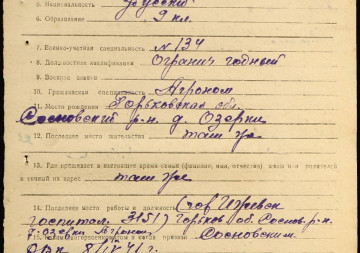 5. Национальность Русский
6. Образование 9 кл.
7. Военно-учетная специальность № 134
8. Должностная квалификация Огранич годный
9. Военное звание
10. Гражданская специальность Агроном
11. Место рождения Горьковская обл.
Сосновский р-н. д. Озерки
12. Последнее место жительства там же
13. Где проживает в настоящее время семья (фамилия, имя, отчество) жены или родителей
и точный их адрес там же
14. Последнее место работы и должность (гор Ижевск
госпитал 3151) Горьков об. Соснов. р-н.
д. Озерки Агроном
15. Каким райвоенкоматом и когда призван Сосновским
РВК 8/IX 41 г.